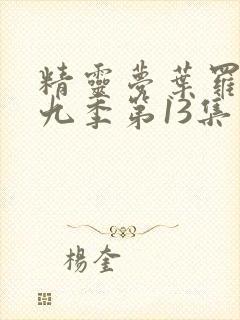 精靈夢葉羅
九季第13集
楊奎